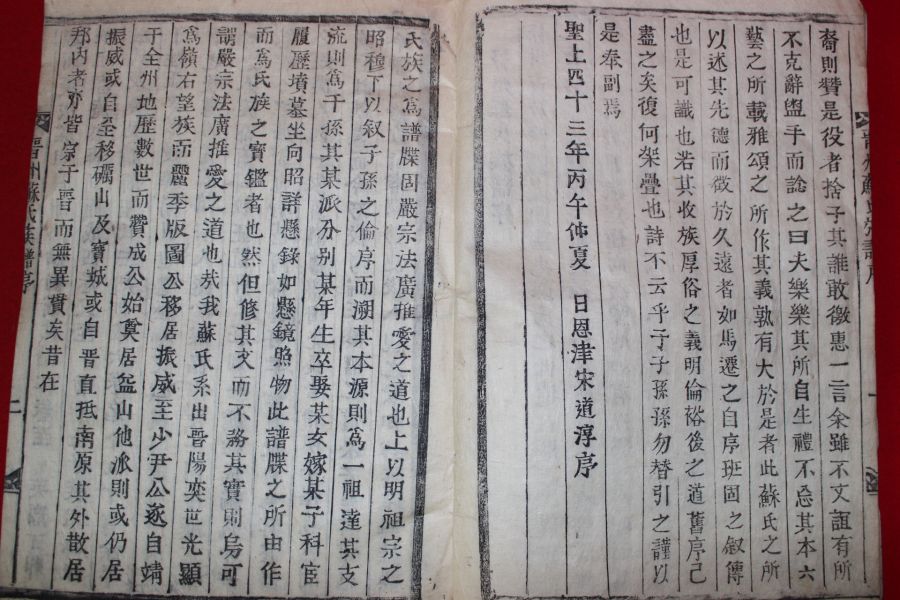 裔則贊是役者捨子其誰敢徼惠一言余雖不文誼有所
不克辭盥手而諗之曰夫樂樂其所自生禮不忘其本六
藝之所載雅頌之所作其義孰有大於是者此蘇氏之所
以述其先德而徵於久遠者如馬遷之自序班固之叙傳
也是可議也若其收族厚俗之義明倫裕後之道舊序已
盡之矣復何架疊也詩不云乎子子孫孫勿替引之謹以
是奉副焉
聖上四十三年丙午仲夏 日恩津宋道淳序
氏族之爲譜牒固嚴宗法廣推愛之道也上以明祖宗之
昭穆下以叙子孫之倫序而溯其本源則爲一祖達其支
流則爲千孫其某派分別某年生卒娶某女嫁某子科宦
履歷墳墓坐向昭詳懸錄如懸鏡照物此譜牒之所由作
而爲氏族之寶鑑者也然但修其文而不務其實則烏可
謂嚴宗法廣推愛之道也哉我蘇氏系出晋陽奕世光顯
爲嶺右望族而麗季版圖公移居振威至少尹公逐自靖
于全州地歷數世而贊成公始奠居益山他派則或仍居
振威或自全移礪山及寶城或自晋直抵南原其外散居
邦內者亦皆宗于晋而無異貫矣昔在
晋州蘇氏族譜序
二